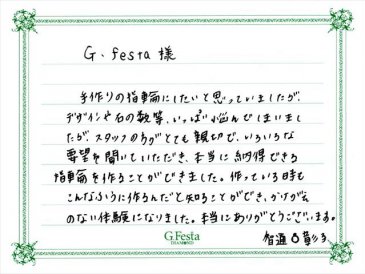 G.festa 様
手作りの指輪にしたいと思っていましたが、
デザインや石の数等、いっぱい悩んでしまいまし
たが、スタッフの方がとても親切で、いろいろな
要望を聞いていただき、本当に納得できる
指輪を作ることができました。作っている時も
こんなふうに作るんだと知ることができ、かけがえ
のない体験になりました。本当にありがとうございます。
智通 彰子
G.Festa
DIAMOND